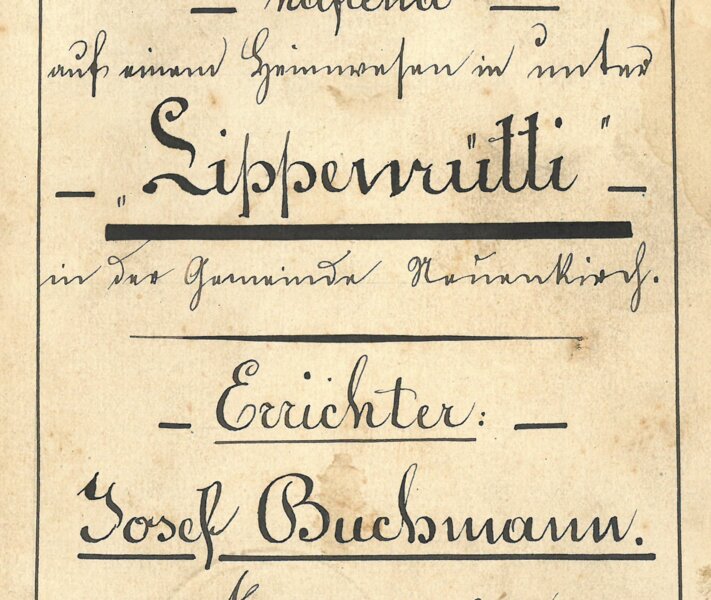 — haftend —
auf einem Heimwesen in unter
— „Lippenrütti" —
in der Gemeinde Neuenkirch.
— Errichter: —
Josef Buchmann.